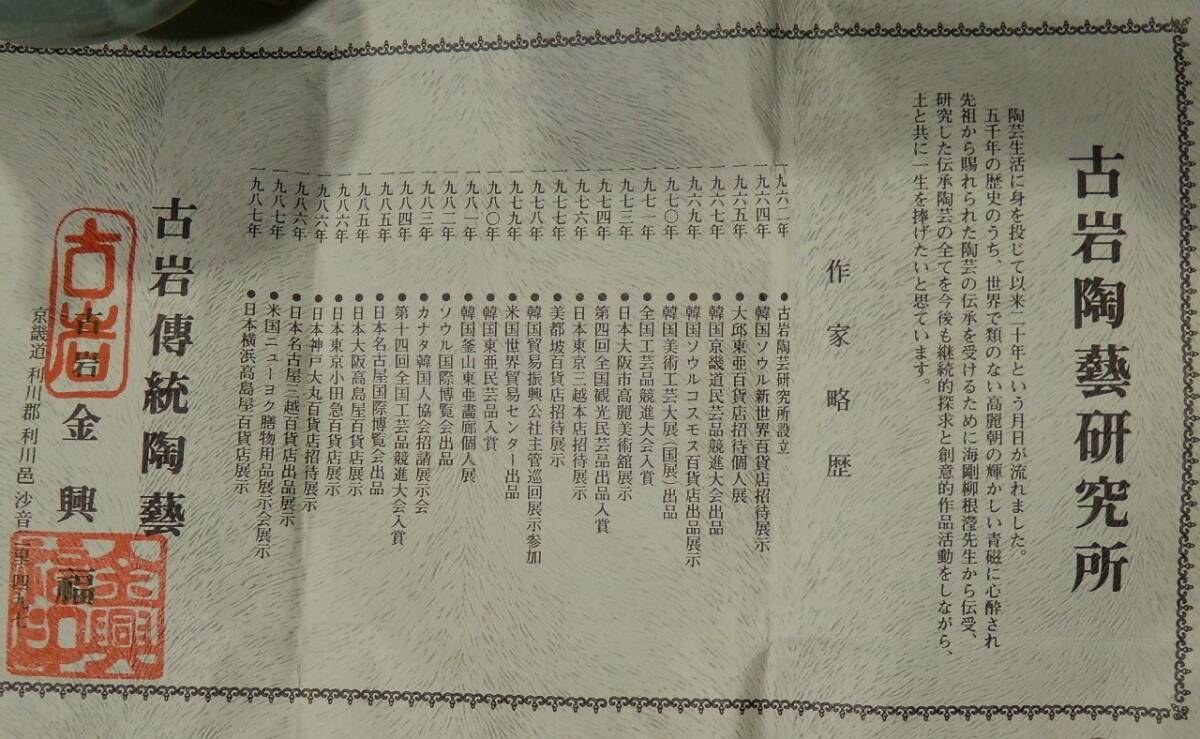 古岩陶藝研究所
陶芸生活に身を投じて以来二十年という月日が流れました。
五千年の歴史のうち、世界で類のない高麗朝の輝かしい青磁に心酔され
先祖から賜れられた陶芸の伝承を受けるために海剛柳根瀅先生から伝受、
研究した伝承陶芸の全てを今後も継続的探求と創意的作品活動をしながら、
土と共に一生を捧げたいと思ています。
作家略歴
一九六二年 ●古岩陶芸研究所設立
一九六四年 ●韓国ソウル新世界百貨店招待展示
一九六五年 ●大邱東亜百貨店招待個人展
一九六七年 ●韓国京畿道民芸品競進大会出品
一九六九年 ●韓国ソウルコスモス百貨店出品展示
一九七〇年 ●韓国美術工芸大展(国展)出品
一九七一年 ●全国工芸品競進大会入賞
一九七三年 ●日本大阪市高麗美術舘展示
一九七四年 ●第四回全国観光民芸品出品入賞
一九七六年 ●日本東京三越本店招待展示
一九七七年 ●美都坡百貨店招待展示
一九七八年 ●韓国貿易振興公社主管巡回展示参加
一九七九年 ●米国世界貿易センター出品
一九八〇年 ●韓国東亜民芸品入賞
一九八一年 ●韓国釜山東亜畵廊個人展
一九八二年 ●ソウル国際博覧会出品
一九八三年 ●カナタ韓国人協会招請展示会
一九八四年 ●第十四回全国工芸品競進大会入賞
一九八五年 ●日本名古屋国際博覧会出品
一九八五年 ●日本大阪高島屋百貨店展示
一九八六年 ●日本東京小田急百貨店展示
一九八六年 ●日本神戸大丸百貨店招待展示
一九八六年 ●日本名古屋三越百貨店出品展示
一九八七年 ●米国ニューヨク膳物用品展示会展示
一九八七年 ●日本横浜高島屋百貨店展示
古岩傳統陶藝
古岩 金興福
京畿道 利川郡 利川邑 沙音 里 四九七
古岩
金興福印